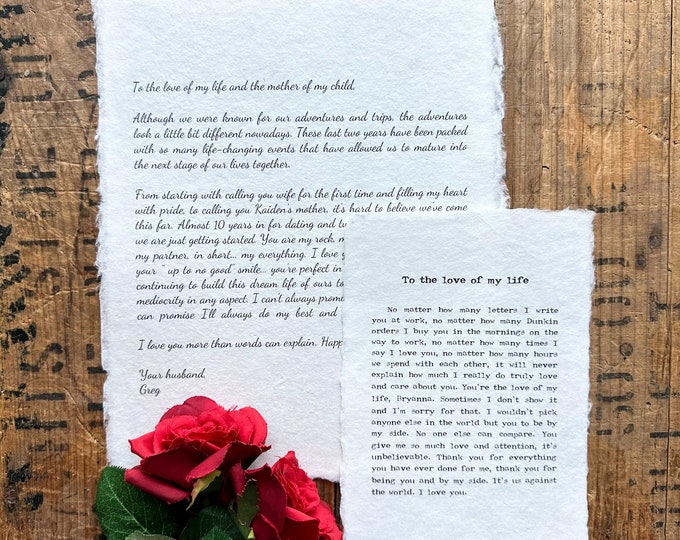 To the love of my life and the mother of my child,
Although we were known for our adventures and trips, the adventures
look a little bit different nowadays. These last two years have been packed
with so many life-changing events that have allowed us to mature into
the next stage of our lives together.
From starting with calling you wife for the first time and filling my heart
with pride, to calling you Kaiden's mother, it's hard to believe we've come
this far. Almost 10 years in for dating and
we are just getting started. You are my rock,
my partner, in short... my everything. I love
your "up to no good" smile... you're perfect in
continuing to build this dream life of ours
mediocrity in any aspect. I can't always
can promise I'll always do my best and
I love you more than words can explain.
Your husband,
Greg
To the love of my life
No matter how many letters I write
you at work, no matter how many Dunkin
orders I buy you in the mornings on the
way to work, no matter how many times I
say I love you, no matter how many hours
we spend with each other, it will never
explain how much I really do truly love
and care about you. You're the love of my
life, Bryanna. Sometimes I don't show it
and I'm sorry for that. I wouldn't pick
anyone else in the world but you to be by
my side. No one else can compare. You
give me so much love and attention, it's
unbelievable. Thank you for everything
you have ever done for me, thank you for
being you and by my side. It's us against
the world. I love you.